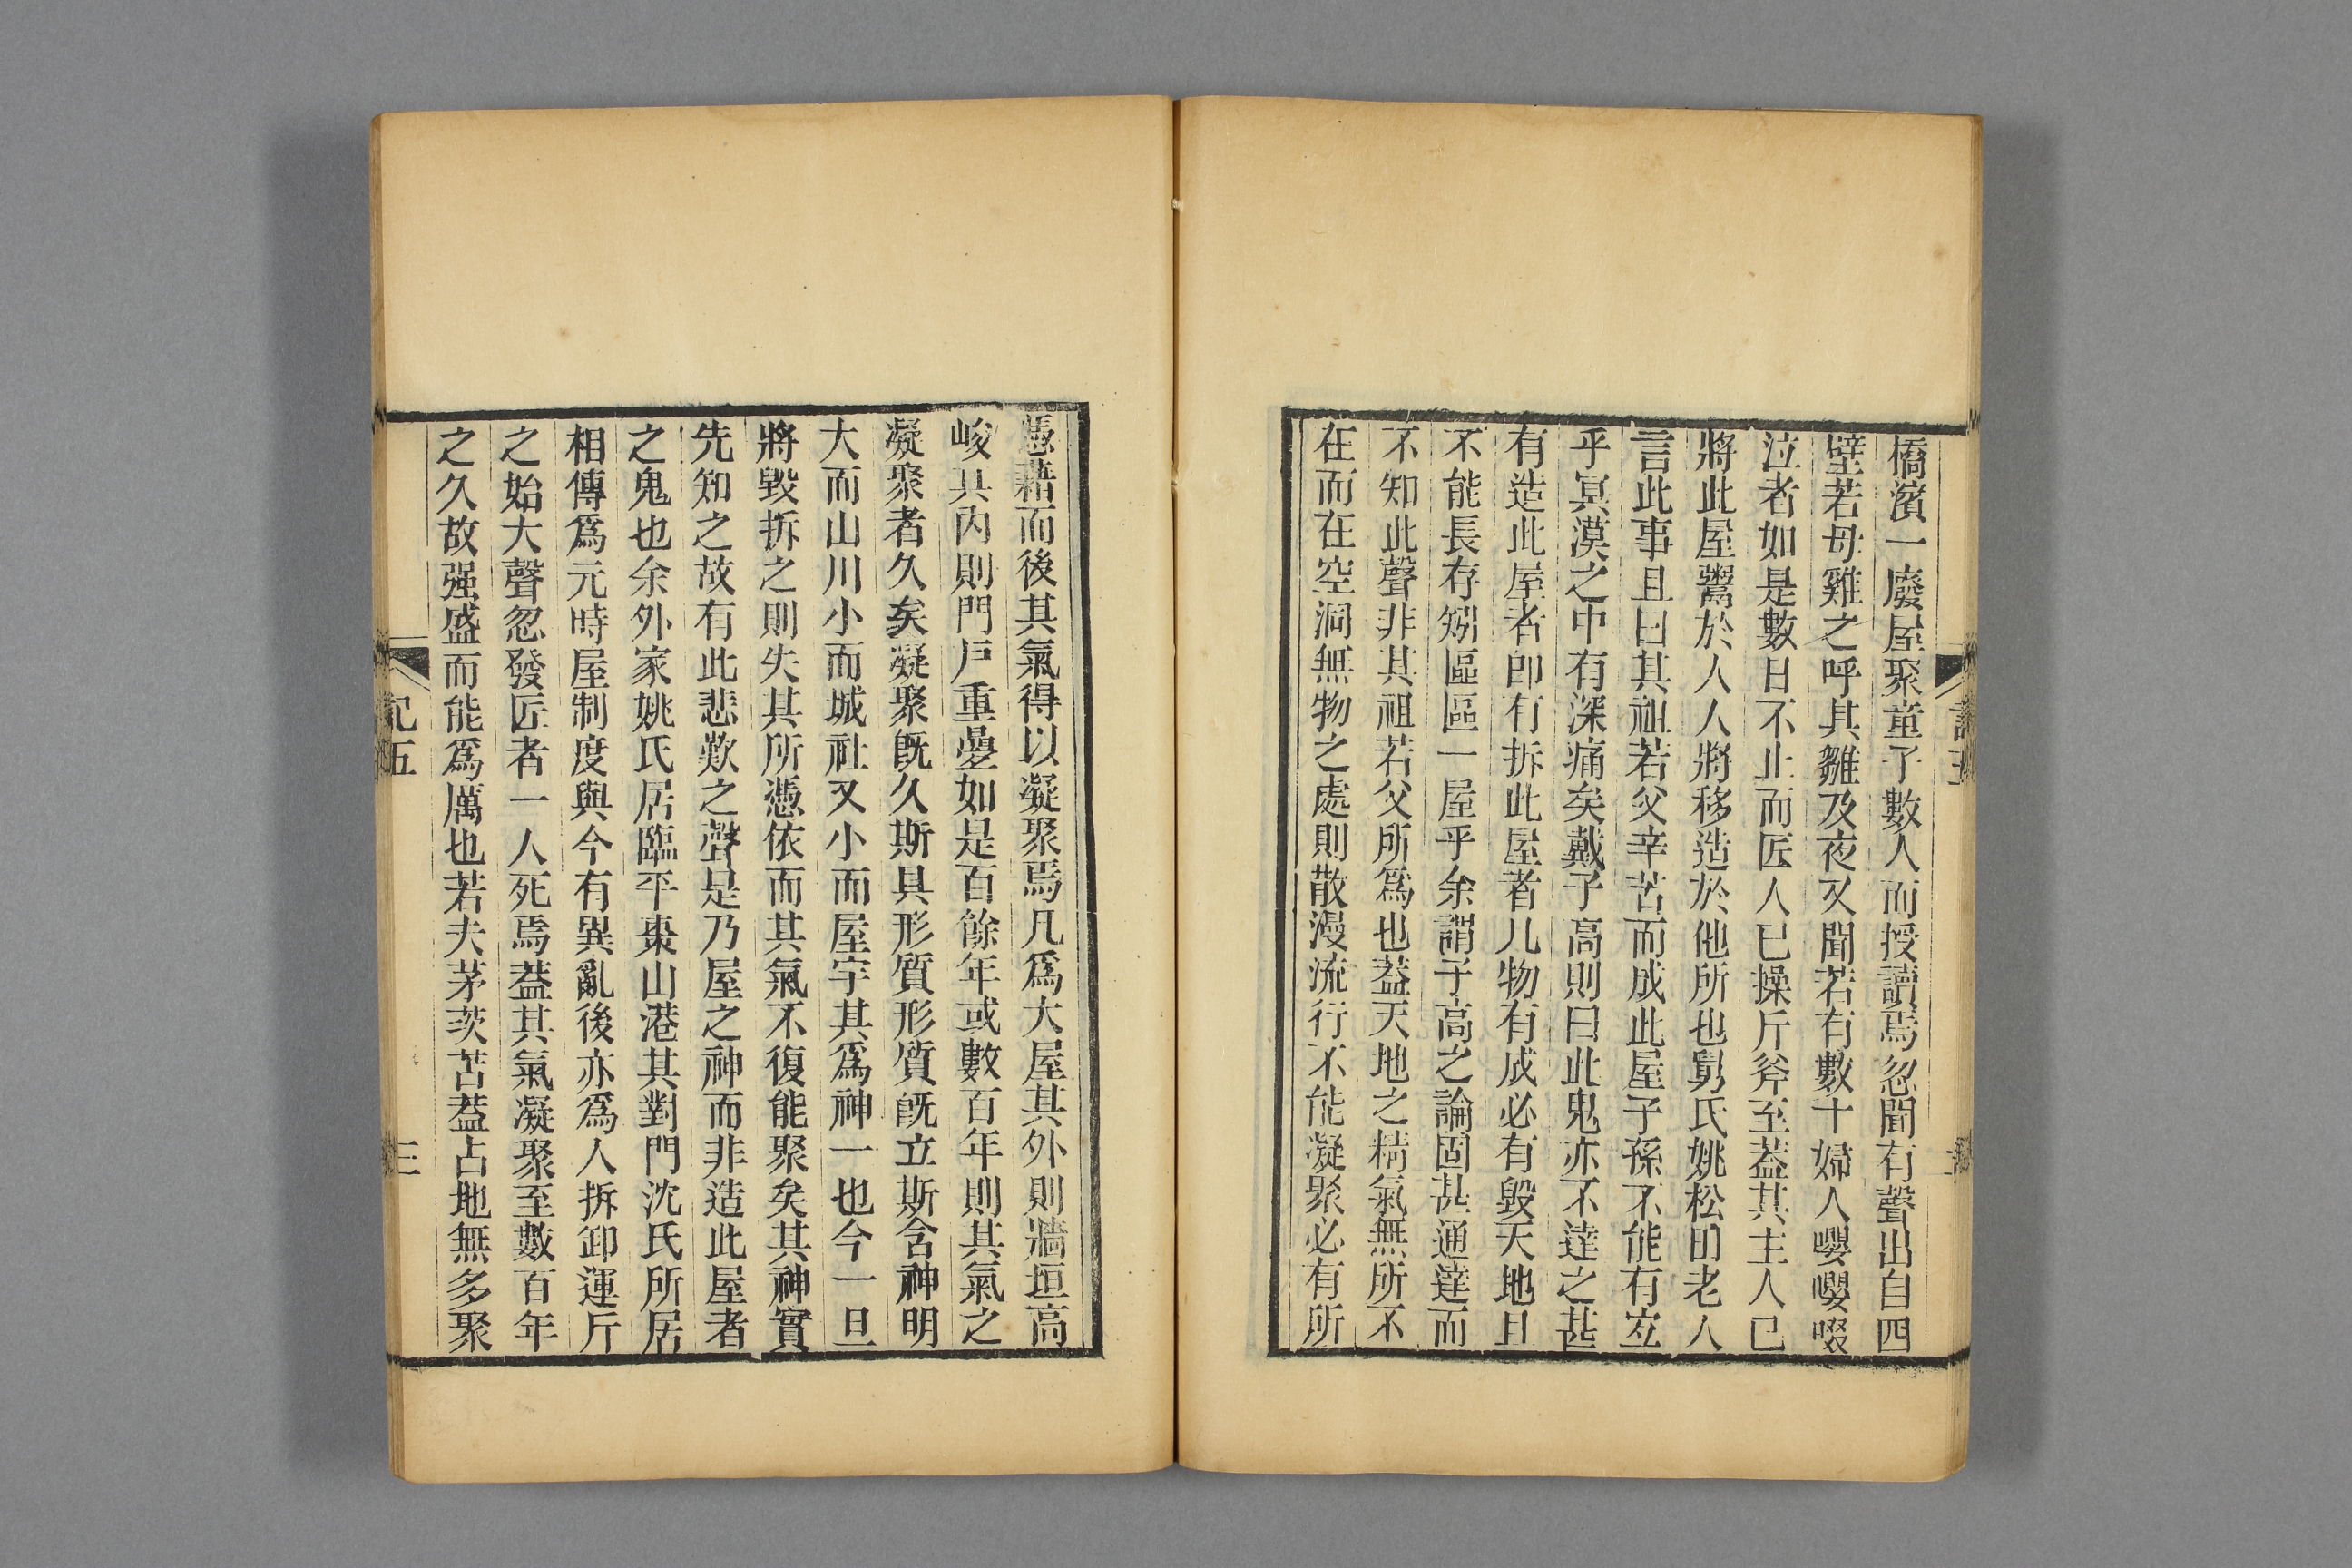 橋濱一廢屋聚童子數人而授讀焉忽聞有聲出自四
壁若母雞之呼其雛及夜又聞若有數十婦人嚶嚶啜
泣者如是數日不止而匠人已操斤斧至葢其主人已
將此屋鬻於人人將移造於他所也舅氏姚松田老人
言此事且曰其祖若父辛苦而成此屋子孫不能有宜
乎冥漠之中有深痛矣戴子高則曰此鬼亦不達之甚
有造此屋者卽有拆此屋者凡物有成必有毀天地且
不能長存矧區區一屋乎余謂子高之論固甚通達而
不知此聲非其祖若父所爲也葢天地之精氣無所不
在而在空洞無物之處則散漫流行不能凝聚必有所
憑藉而後其氣得以凝聚焉凡爲大屋其外則牆垣高
峻其內則門戶重疊如是百餘年或數百年則其氣之
凝聚者久矣凝聚旣久斯具形質形質旣立斯含神明
大而山川小而城社又小而屋宇其爲神一也今一旦
將毀拆之則失其所憑依而其氣不復能聚矣其神實
先知之故有此悲歎之聲是乃屋之神而非造此屋者
之鬼也余外家姚氏居臨平棗山港其對門沈氏所居
相傳爲元時屋制度與今有異亂後亦爲人拆卸運斤
之始大聲忽發匠者一人死焉葢其氣凝聚至數百年
之久故强盛而能爲厲也若夫茅茨苫葢占地無多聚
記五
三